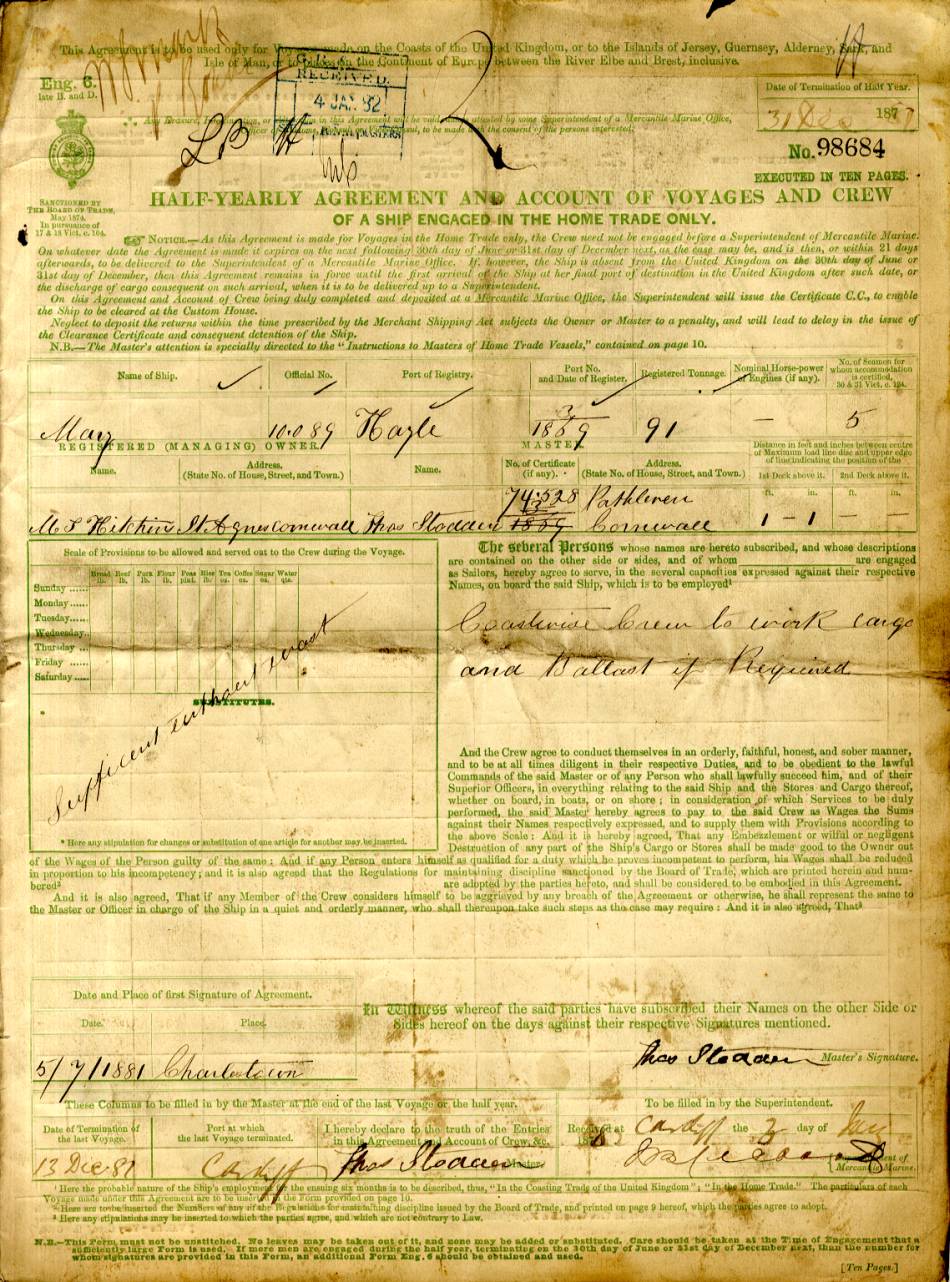 This Agreement is to be used only for Voyages made on the Coasts of the United Kingdom, or to the Islands of Jersey, Guernsey, Alderney, Sark, and
Isle of Man, or to places on the Continent of Europe between the River Elbe and Brest, inclusive.
Eng. 6.
late B. and D.
RECEIVED
4 JAN. 82
Date of Termination of Half Year.
31 Dec 187
No. 98684
EXECUTED IN TEN PAGES.
SANCTIONED BY
THE BOARD OF TRADE,
May 1874.
In pursuance of
17 & 18 Vict. c. 104.
HALF-YEARLY AGREEMENT AND ACCOUNT OF VOYAGES AND CREW
OF A SHIP ENGAGED IN THE HOME TRADE ONLY.
NOTICE.—As this Agreement is made for Voyages in the Home Trade only, the Crew need not be engaged before a Superintendent of Mercantile Marine.
On whatever date the Agreement is made it expires on the next following 30th day of June or 31st day of December next, as the case may be, and is then, or within 21 days
afterwards, to be delivered to the Superintendent of a Mercantile Marine Office. If, however, the Ship is absent from the United Kingdom on the 30th day of June or
31st day of December, then this Agreement remains in force until the first arrival of the Ship at her final port of destination in the United Kingdom after such date, or
the discharge of cargo consequent on such arrival, when it is to be delivered up to a Superintendent.
On this Agreement and Account of Crew being duly completed and deposited at a Mercantile Marine Office, the Superintendent will issue the Certificate C.C., to enable
the Ship to be cleared at the Custom House.
Neglect to deposit the returns within the time prescribed by the Merchant Shipping Act subjects the Owner or Master to a penalty, and will lead to delay in the issue of
the Clearance Certificate and consequent detention of the Ship.
N.B.—The Master's attention is specially directed to the "Instructions to Masters of Home Trade Vessels," contained on page 10.
Name of Ship. Official No. Port of Registry. Port No. and Date of Register. Registered Tonnage. Nominal Horse-power of Engines (if any). No. of Seamen for whom accommodation is certified, 30 & 31 Vict. c. 124.
Mary 10.089 Hayle 3/1869 91 — 5
REGISTERED (MANAGING) OWNER. MASTER.
Distance in feet and inches between centre of Maximum load line disc and upper edge of line indicating the position of the
Name. Address. (State No. of House, Street, and Town.) Name. No. of Certificate (if any). Address. (State No. of House, Street, and Town.) 1st Deck above it. 2nd Deck above it.
ft. in. ft. in.
74.528 Pathleven
St. Agnes cornwall Thos Stodden 1869 Cornwall 1 - 1 — —
Scale of Provisions to be allowed and served out to the Crew during the Voyage.
Bread lb. Beef lb. Pork lb. Flour lb. Peas pint. Rice lb. Tea oz. Coffee oz. Sugar oz. Water qts.
Sunday ......
Monday ......
Tuesday......
Wednesday..
Thursday ....
Friday ......
Saturday.....
Sufficent without wast
SUBSTITUTES.
* Here any stipulation for changes or substitution of one article for another may be inserted.
The several Persons whose names are hereto subscribed, and whose descriptions
are contained on the other side or sides, and of whom are engaged
as Sailors, hereby agree to serve, in the several capacities expressed against their respective
Names, on board the said Ship, which is to be employed¹
Coastwise Crew to work cargo
and Ballast if Required
And the Crew agree to conduct themselves in an orderly, faithful, honest, and sober manner,
and to be at all times diligent in their respective Duties, and to be obedient to the lawful
Commands of the said Master or of any Person who shall lawfully succeed him, and of their
Superior Officers, in everything relating to the said Ship and the Stores and Cargo thereof,
whether on board, in boats, or on shore; in consideration of which Services to be duly
performed, the said Master hereby agrees to pay to the said Crew as Wages the Sums
against their Names respectively expressed, and to supply them with Provisions according to
the above Scale: And it is hereby agreed, That any Embezzlement or wilful or negligent
Destruction of any part of the Ship's Cargo or Stores shall be made good to the Owner out
of the Wages of the Person guilty of the same: And if any Person enters himself as qualified for a duty which he proves incompetent to perform, his Wages shall be reduced
in proportion to his incompetency; and it is also agreed that the Regulations for maintaining discipline sanctioned by the Board of Trade, which are printed herein and num-
bered² are adopted by the parties hereto, and shall be considered to be embodied in this Agreement.
And it is also agreed, That if any Member of the Crew considers himself to be aggrieved by any breach of the Agreement or otherwise, he shall represent the same to
the Master or Officer in charge of the Ship in a quiet and orderly manner, who shall thereupon take such steps as the case may require: And it is also agreed, That³
Date and Place of first Signature of Agreement.
Date. Place.
5/7/1881 Charlestown
In Witness whereof the said parties have subscribed their Names on the other Side or
Sides hereof on the days against their respective Signatures mentioned.
Thos Stodden Master's Signature.
These Columns to be filled in by the Master at the end of the last Voyage or the half year.
To be filled in by the Superintendent.
Date of Termination of the last Voyage. Port at which the last Voyage terminated. I hereby declare to the truth of the Entries in this Agreement and Account of Crew, &c.
13 Dec 81 Cardiff Thos Stodden Master.
Received at Cardiff the 3 day of Jan
Mercantile Marine.
¹ Here the probable nature of the Ship's employment for the ensuing six months is to be described, thus, "In the Coasting Trade of the United Kingdom"; "In the Home Trade." The particulars of each
Voyage made under this Agreement are to be inserted in the Form provided on page 10.
² Here are to be inserted the Numbers of any of the Regulations for maintaining discipline issued by the Board of Trade, and printed on page 9 hereof, which the parties agree to adopt.
³ Here any stipulations may be inserted to which the parties agree, and which are not contrary to Law.
N.B.—This Form must not be unstitched. No leaves may be taken out of it, and none may be added or substituted. Care should be taken at the Time of Engagement that a
sufficiently large Form is used. If more men are engaged during the half year, terminating on the 30th day of June or 31st day of December next, than the number for
whom signatures are provided in this Form, an additional Form Eng. 6 should be obtained and used.
[Ten Pages.]